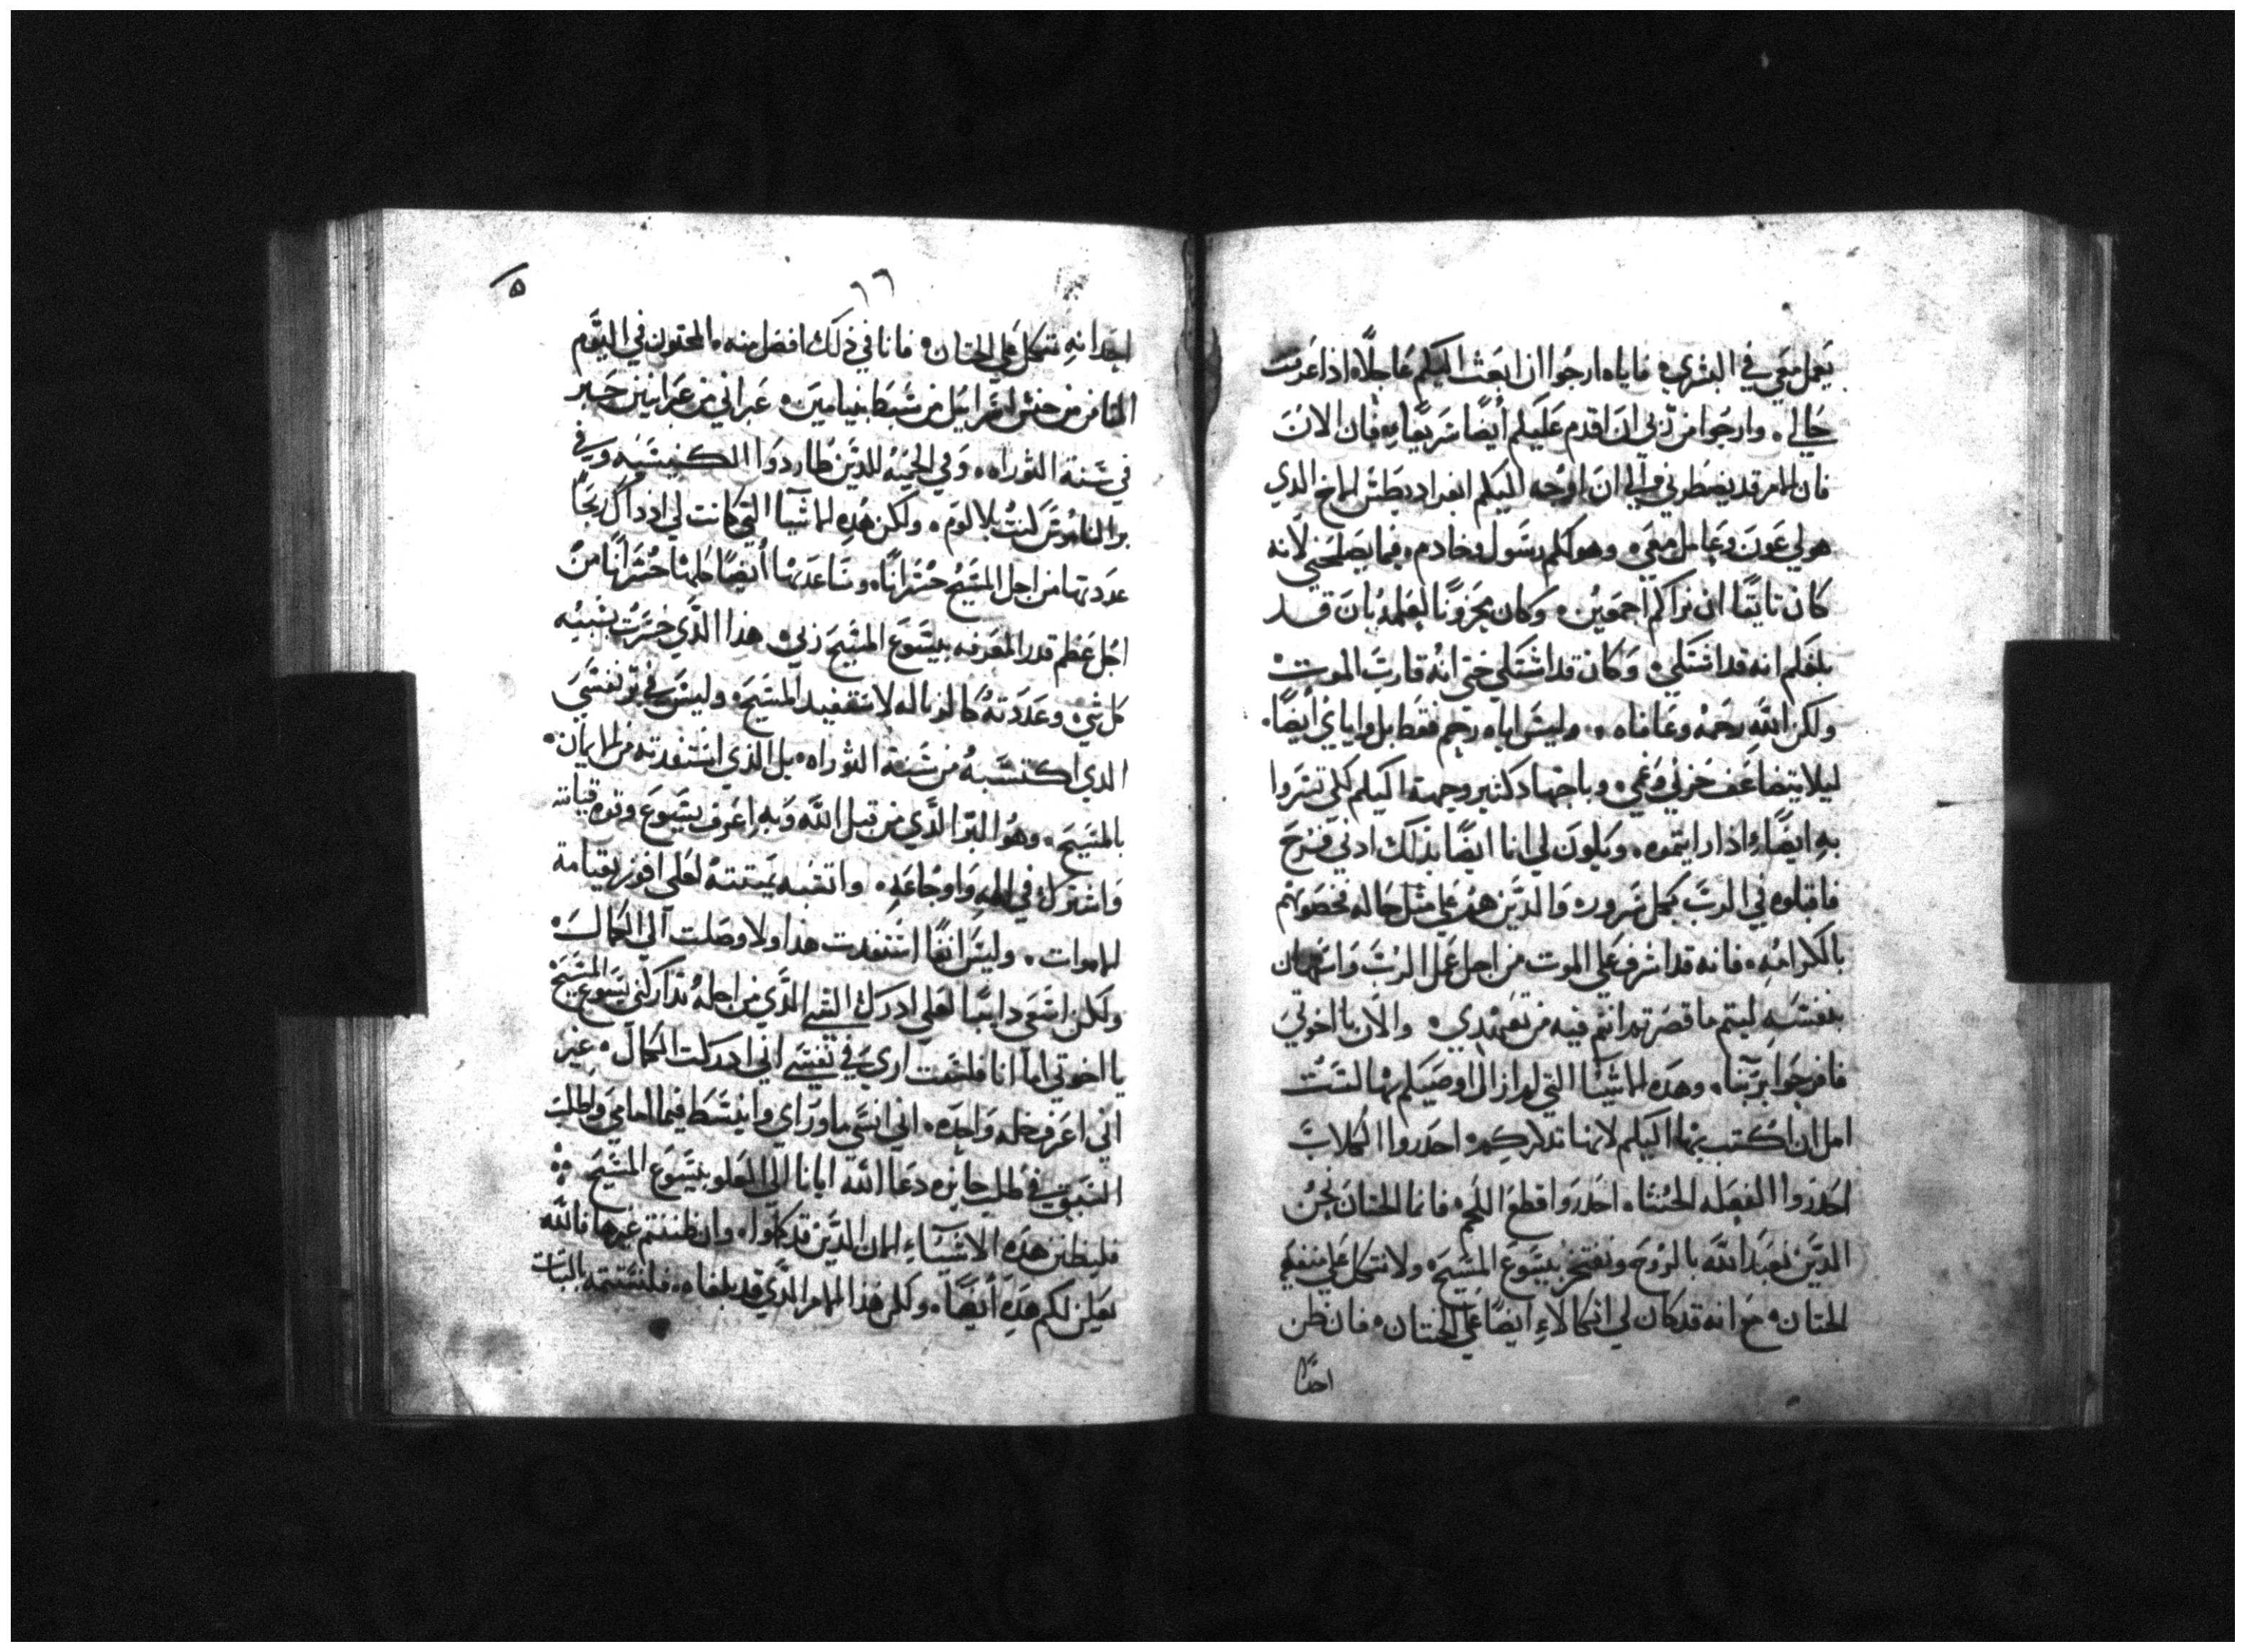 يعمل معي في البشري، فاياه ارجوا ان ابعث اليكم عاجلًا، اذا عرفت
حالي. وارجوا من ربي ان اقدم عليكم أيضًا سريعًا، فان الان
فان الامر قد يضطرني الي ان اوجه اليكم ابفراديطس الاخ الدي
هو لي عون وعامل معي، وهو لكم رسول وخادم، فيما يصلحني لانه
كان تايقًا ان يراكم اجمعين، وكان محزونًا لعلمه بان قد
بلغكم انه قد اشتكي، وكان قد اشتكي حتي انه قارب الموت
ولكن الله رحمه وعافاه. وليس اياه رحم فقط بل واياي أيضًا.
ليلا يتضاعف حزني وغمي، وباجتهاد كثير وجهته اليكم لكي تسروا
به ايضًا، اذا رايتموه. ويكون لي انا ايضًا بذلك ادني فرح
فاقبلوه في الرب بكل سرور، والدين هم علي مثل حاله فخصوهم
بالكرامه، فانه قد اشرف علي الموت من اجل عمل الرب واستهان
بنفسه ليتم ما قصرتم انتم فيه من تعهدي، والان يا اخوتي
فافرحوا بربنا، وهده الاشيا التي لم ازال اوصيكم بها لست
امل ان اكتب بها اليكم لانها تدكركم، احدروا الكلاب
احدروا الفعله الخبثا، احدروا قطع اللحم، فانما الختان نحن
الدين نعبد الله بالروح ونفتخر بيسوع المسيح، ولا نتكل علي
الختان، مع انه قد كان لي اتكالاءِ ايضًا علي الختان، فان ظن
احدًا
٦٦
٥
احدا انه تتكل علي الختان، فانا في ذلك افضل منه، المختون في اليوم
الثامن من جنس اسراييل من سبط بنيامين، عبراني من عبرانيين حبر
في سنة التوراه، وفي الحميه للدين طاردوا الكنيسه، وفي
بر الناموس كنت بلا لوم، ولكن هده الاشيا التي كانت لي اذ داك ربحًا
عددتها من اجل المسيح خسرانًا، وساعدها أيضًا كلها خسرانًا من
اجل عظم قدر المعرفه بيسوع المسيح ربي، هدا الدي خسرت بسببه
كل شي، وعددته كالزباله لاستفيد المسيح، وليس في بر نفسي
الدي اكتسبه من سنة التوراه، بل الذي استفدته من الايمان
بالمسيح، وهو البر الدي من قبل الله وبه اعرف يسوع وقوة قيامته
واشترك في الامه واوجاعه، واتشبه بميتته لعلي افوز بقيامة
الاموات، وليس انفًا استفدت هدا ولا وصلت الي الكمال،
ولكن اسعي دايبًا لعلي ادرك الشي الدي من اجله تداركني يسوع المسيح
يا اخوتي اما انا فلست اري في نفسي اني ادركت الكمال، غير
اني اعرف خله واحده، اني انسي ما وراي وانبسط فيما امامي واطلب
السبق في طلب جايزه دعا الله ايانا الي العلو بيسوع المسيح
فليظن هده الاشياءِ الان الدين قد كملوا، وان ظننتم غيرها فالله
يعلن لكم هده أيضًا، ولكن هذا الامر الدي قد بلغناه، فلنستتمه بالثبات